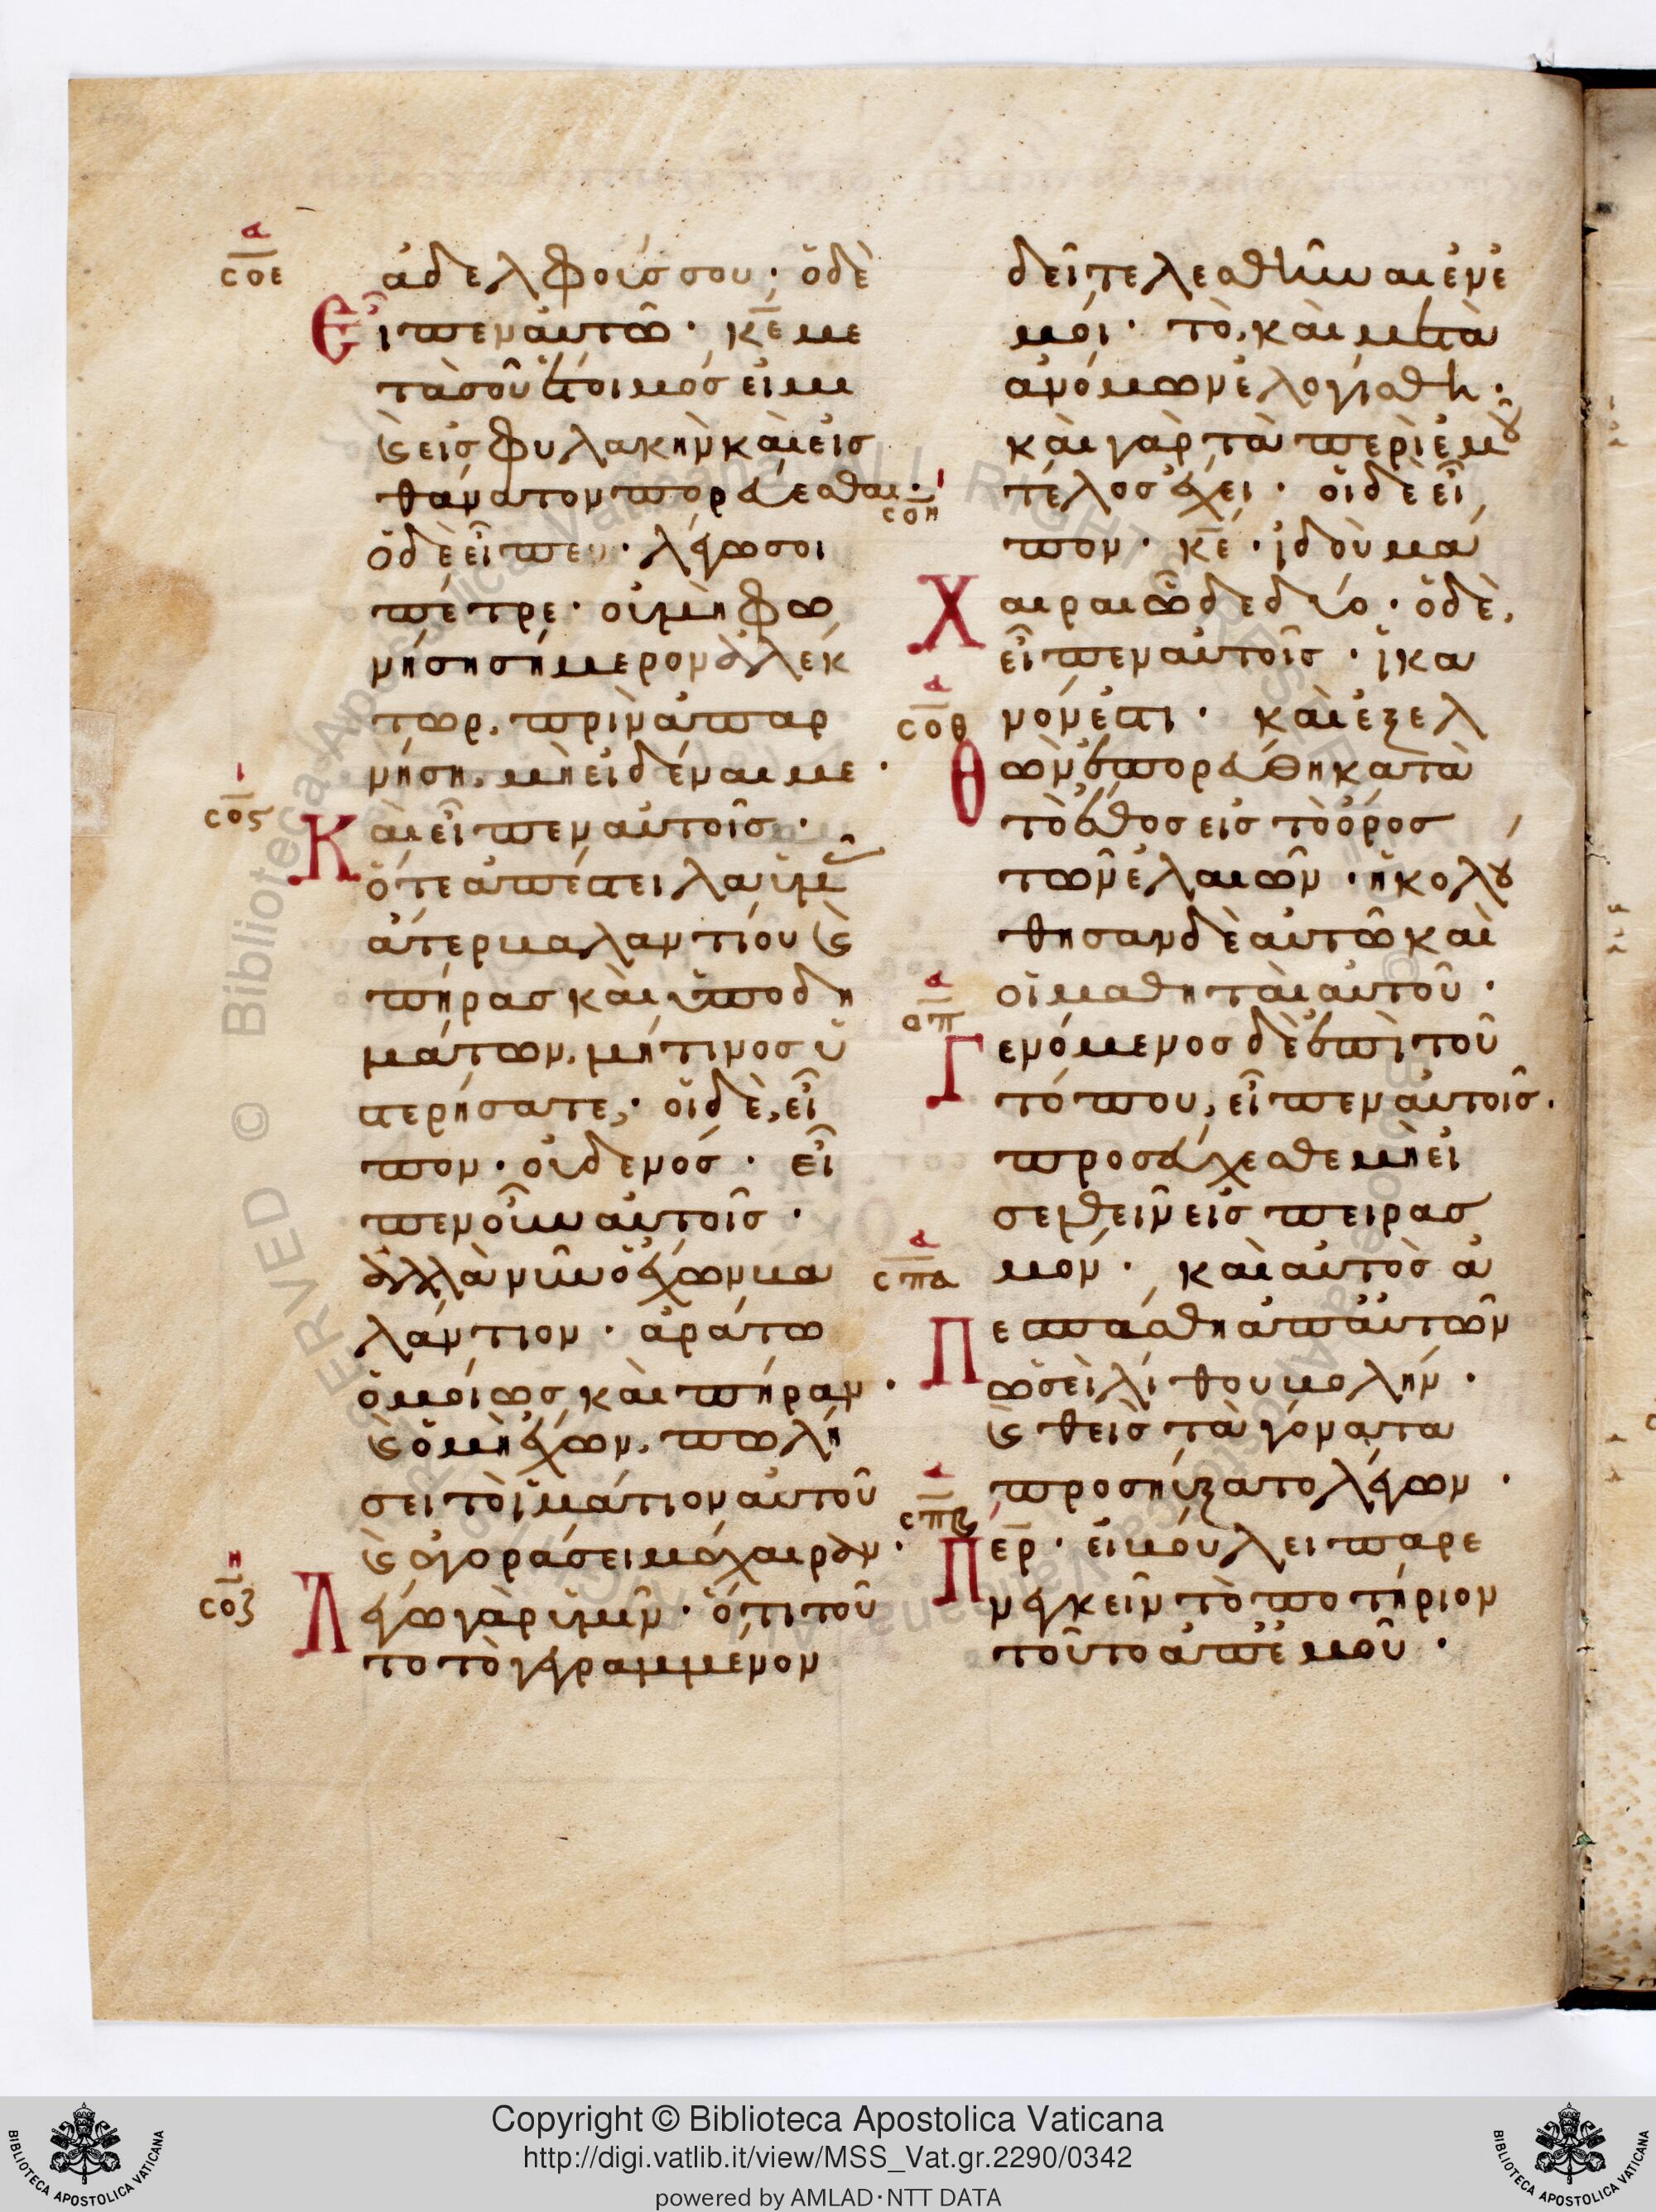 α
σοε
ἀδελφοὺς σου· ὁ δὲ
εἶπεν αὐτῶ· κε με
τὰ σοῦ ἕτοιμός εἰμι
καὶ εἰς φυλακὴν καὶ εἰς
θάνατον πορεύεσθαι·
ὁ δὲ εἶπεν· λέγω σοι
πέτρε· οὐ μὴ φω
νήση σήμερον ἀλέκ
τωρ, πρὶν ἀπαρ
νήση, μὴ εἰδέναι με·
ι
σος
καὶ εἶπεν αὐτοῖς·
ὅτε ἀπέστειλα ὑμᾶς
ἄτερ βαλαντίου καὶ
πήρας καὶ ὑποδη
μάτων, μή τινος ὑ
στερήσατε; οἱ δὲ, εἶ
πον· οὐδενός· εἶ
πεν οὖν αὐτοῖς·
ἀλλὰ νῦν ὁ ἔχων βα
λάντιον· ἀράτω
ὁμοίως καὶ πήραν·
καὶ ὁ μὴ ἔχων, πωλή
σει τὸ ἱμάτιον αὐτοῦ
καὶ ἀγοράσει μάχαιραν·
η
σοζ
λέγω γὰρ ὑμῖν· ὅτι τοῦ
το τὸ γεγραμμένον
δεῖ τελεσθῆναι ἐν ἐ
μοί· τὸ, καὶ μετὰ
ἀνόμων ἐλογίσθη·
καὶ γὰρ τὰ περὶ ἐμοῦ
ι
σοη
τέλος ἔχει· οἱ δὲ εἶ
πον· κε· ἰδοὺ μά
χαιραι ὧδε δύο· ὁ δὲ,
εἶπεν αὐτοῖς· ἱκα
α
σοθ
νόν ἐστι· καὶ ἐξελ
θὼν ἐπορεύθη κατὰ
τὸ ἔθος εἰς τὸ ὄρος
τῶν ἐλαιῶν· ἠκολού
θησαν δὲ αὐτῶ καὶ
οἱ μαθηταὶ αὐτοῦ·
α
σπ
γενόμενος δὲ ἐπὶ τοῦ
τόπου, εἶπεν αὐτοῖς·
προσεύχεσθε μὴ εἰ
σελθεῖν εἰς πειρασ
α
σπα
μόν· καὶ αὐτὸς ἀ
πεσπάσθη ἀπ' αὐτῶν
ὡσεὶ λίθου βολήν·
καὶ θεὶς τὰ γόνατα
α
σπβ
προσηύξατο λέγων·
περ· εἰ βούλει παρε
νεγκεῖν τὸ ποτήριον
τοῦτο ἀπ' ἐμοῦ·
© Biblioteca Apostolica Vaticana
ALL RIGHTS RESERVED
Copyright © Biblioteca Apostolica Vaticana
http://digi.vatlib.it/view/MSS_Vat.gr.2290/0342
powered by AMLAD·NTT DATA
BIBLIOTECA APOSTOLICA VATICANA
BIBLIOTECA APOSTOLICA VATICANA